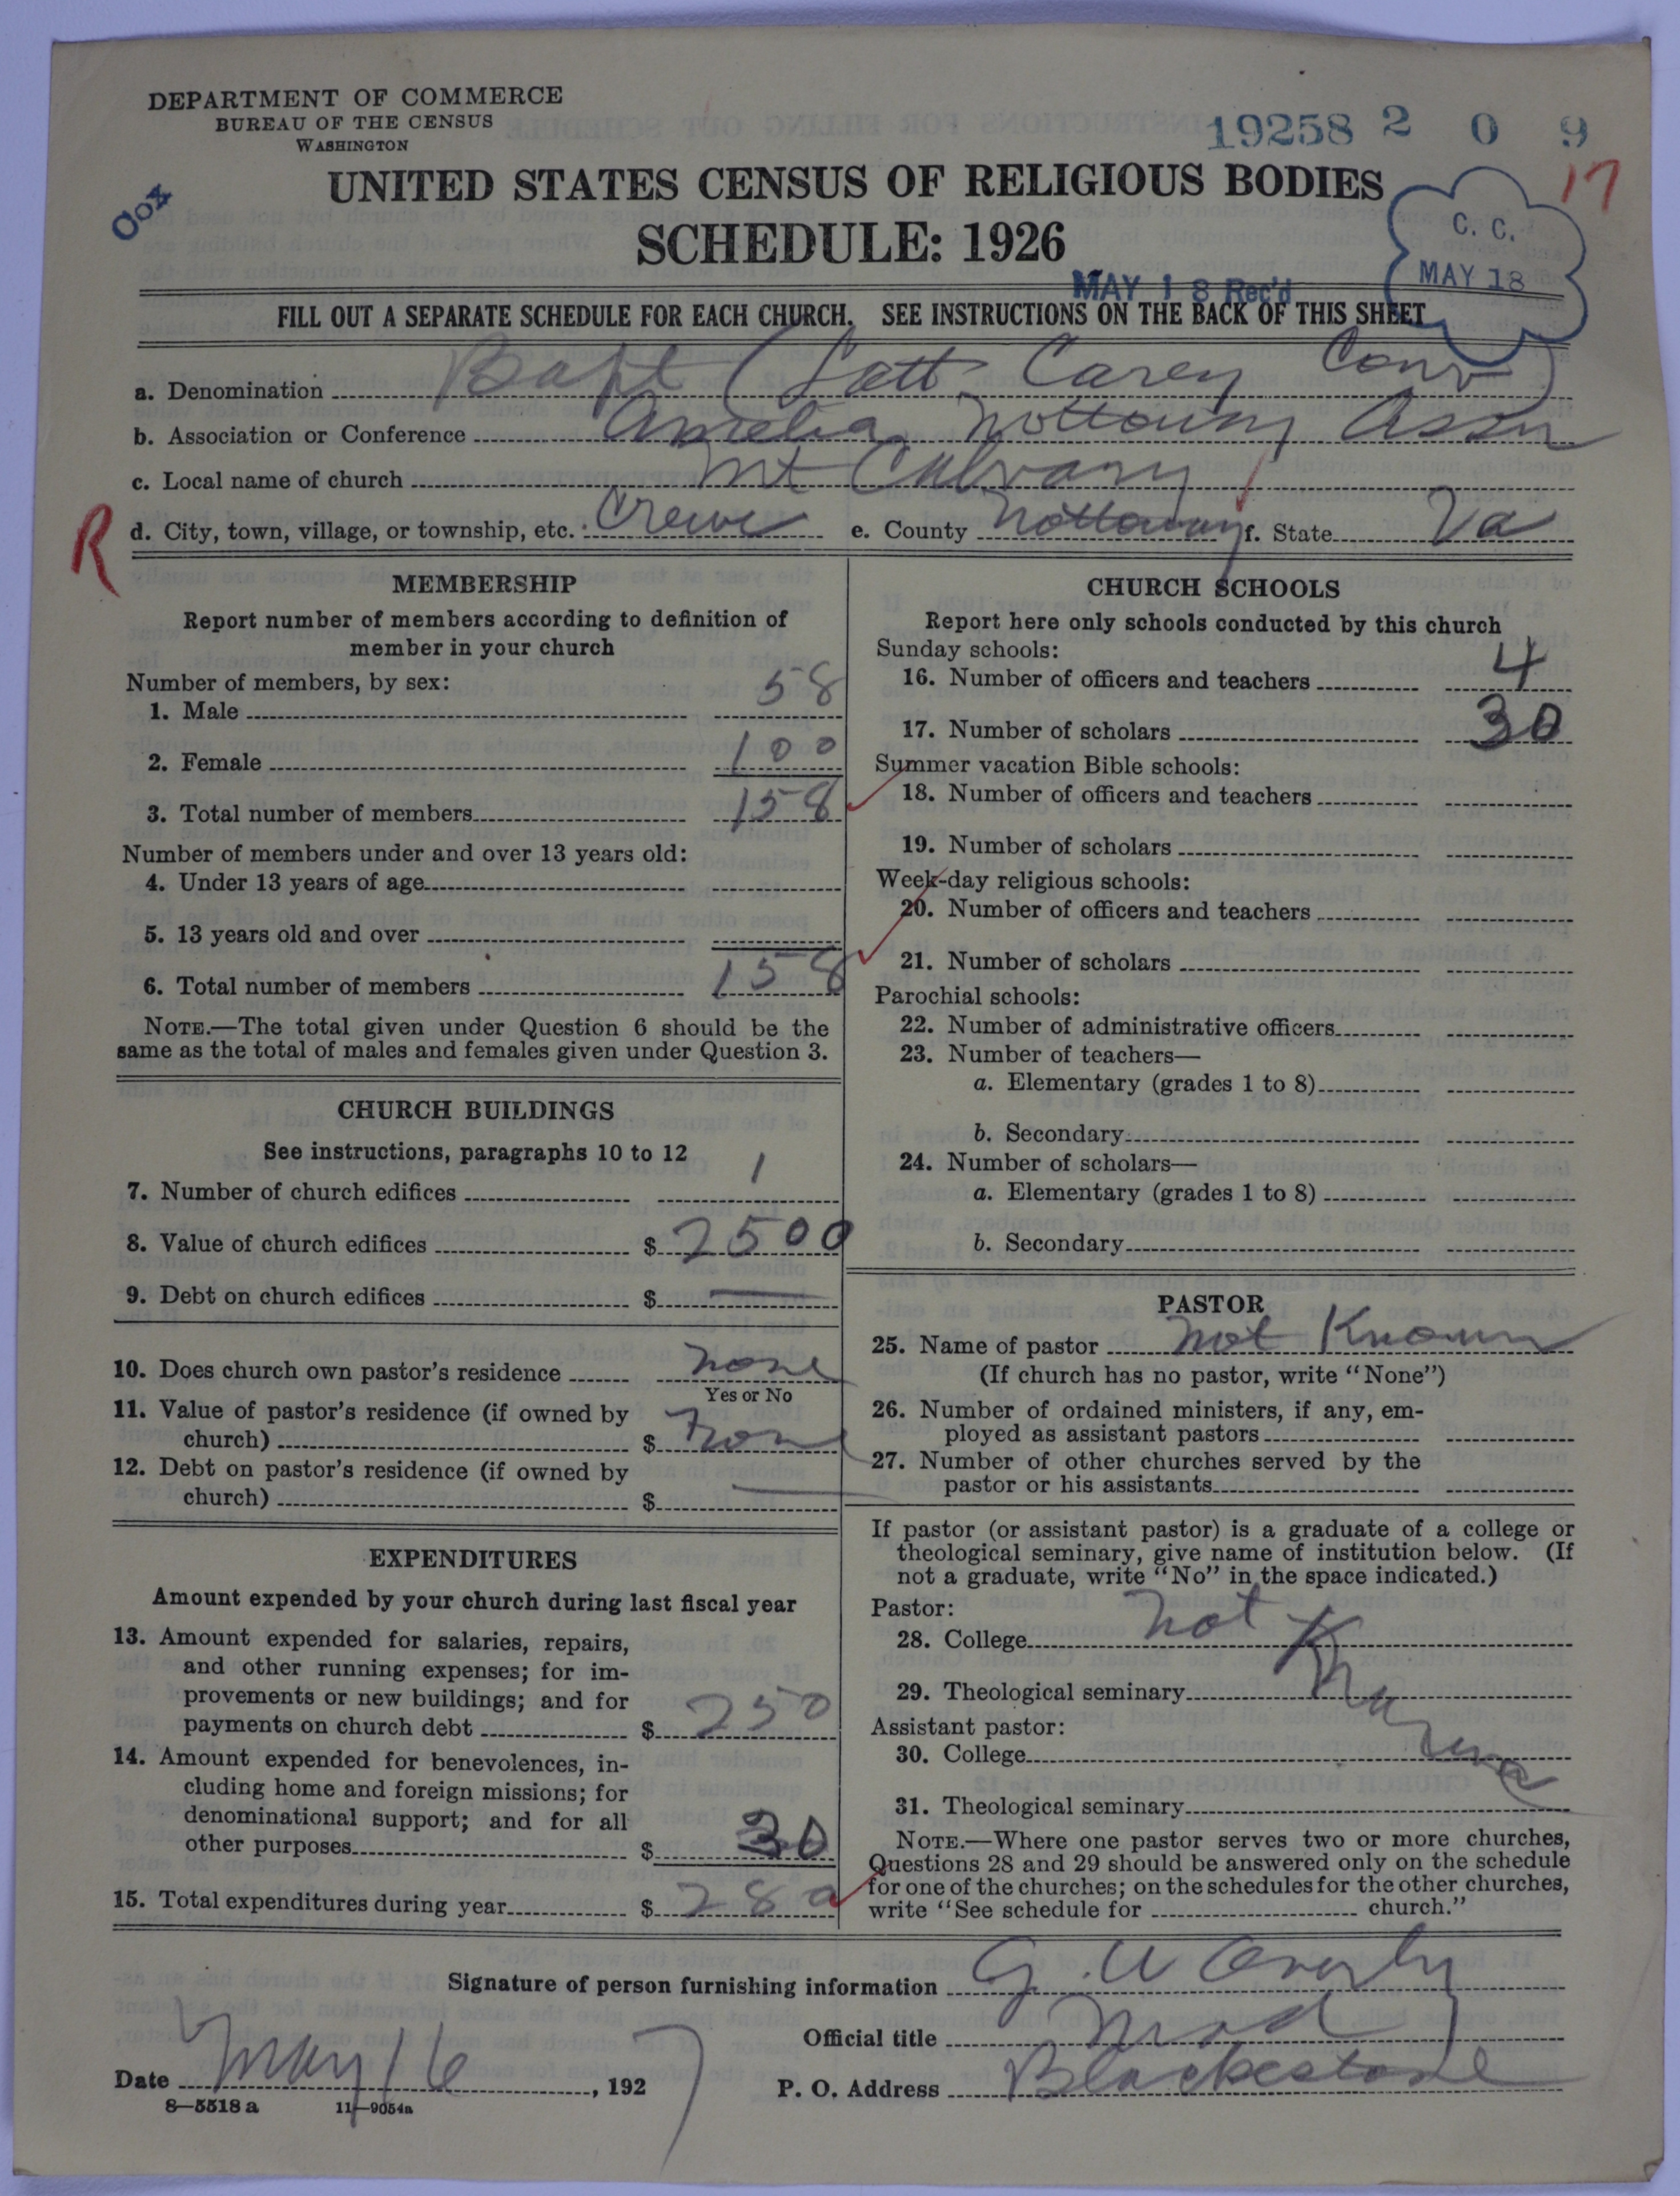 DEPARTMENT OF COMMERCE
BUREAU OF THE CENSUS
WASHINGTON
19258 2 0 9
17
UNITED STATES CENSUS OF RELIGIOUS BODIES
SCHEDULE: 1926
C. C.
MAY 18
MAY 18 Rec'd
FILL OUT A SEPARATE SCHEDULE FOR EACH CHURCH. SEE INSTRUCTIONS ON THE BACK OF THIS SHEET
a. Denomination Bapt (Lott Carey Conv)
b. Association or Conference Amelia Nottoway Assn
c. Local name of church Mt Calvary
R
d. City, town, village, or township, etc. Crewe e. County Nottoway f. State Va
MEMBERSHIP
Report number of members according to definition of
member in your church
Number of members, by sex:
1. Male 58
2. Female 100
3. Total number of members 158
Number of members under and over 13 years old:
4. Under 13 years of age
5. 13 years old and over
6. Total number of members 158
NOTE.—The total given under Question 6 should be the
same as the total of males and females given under Question 3.
CHURCH BUILDINGS
See instructions, paragraphs 10 to 12
7. Number of church edifices 1
8. Value of church edifices $ 2500
9. Debt on church edifices $ —
10. Does church own pastor's residence none
Yes or No
11. Value of pastor's residence (if owned by
church) $ none
12. Debt on pastor's residence (if owned by
church) $ —
EXPENDITURES
Amount expended by your church during last fiscal year
13. Amount expended for salaries, repairs,
and other running expenses; for im-
provements or new buildings; and for
payments on church debt $ 250
14. Amount expended for benevolences, in-
cluding home and foreign missions; for
denominational support; and for all
other purposes $ 30
15. Total expenditures during year $ 280
CHURCH SCHOOLS
Report here only schools conducted by this church
Sunday schools:
16. Number of officers and teachers 4
17. Number of scholars 30
Summer vacation Bible schools:
18. Number of officers and teachers
19. Number of scholars
Week-day religious schools:
20. Number of officers and teachers
21. Number of scholars
Parochial schools:
22. Number of administrative officers
23. Number of teachers—
a. Elementary (grades 1 to 8)
b. Secondary
24. Number of scholars—
a. Elementary (grades 1 to 8)
b. Secondary
PASTOR
25. Name of pastor not Known
(If church has no pastor, write "None")
26. Number of ordained ministers, if any, em-
ployed as assistant pastors
27. Number of other churches served by the
pastor or his assistants
If pastor (or assistant pastor) is a graduate of a college or
theological seminary, give name of institution below. (If
not a graduate, write "No" in the space indicated.)
Pastor:
28. College not
29. Theological seminary
Assistant pastor:
30. College
31. Theological seminary
NOTE.—Where one pastor serves two or more churches,
Questions 28 and 29 should be answered only on the schedule
for one of the churches; on the schedules for the other churches,
write "See schedule for church."
Signature of person furnishing information G. W Overby
Official title Mod
Date May 16, 1927 P. O. Address Blackestone
8—5518 a 11—9054a